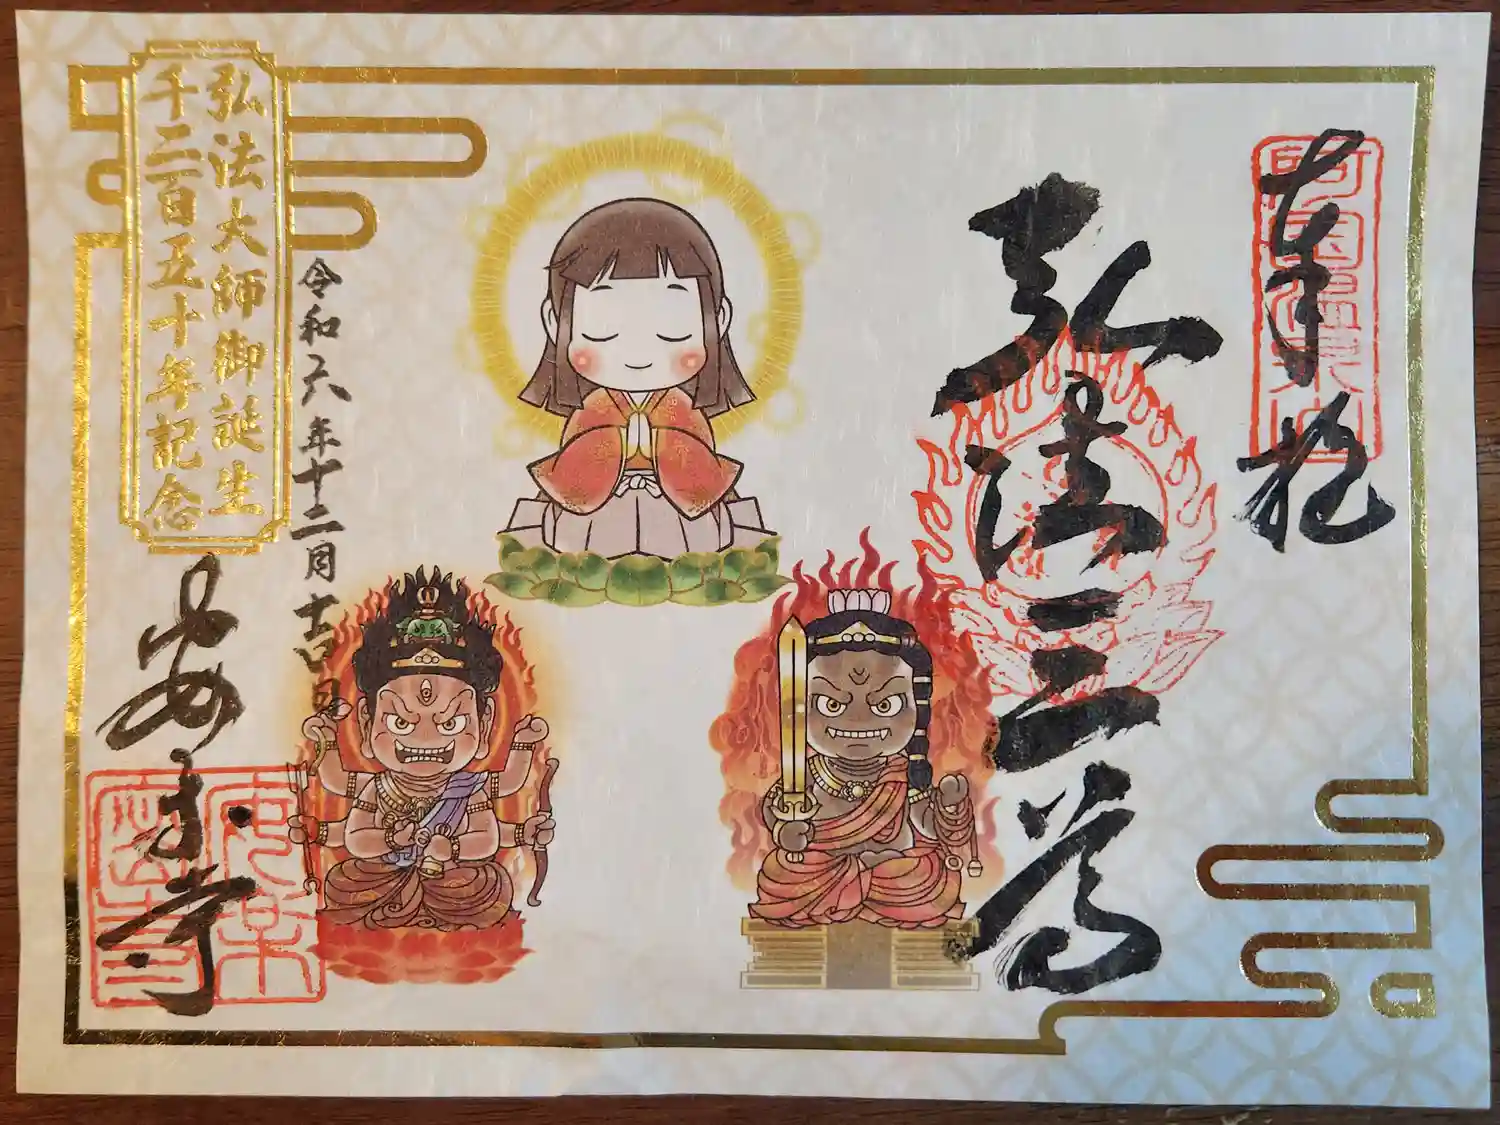 奉拝
阿国温泉山
弘法三尊
弘法大師御誕生
千二百五十年記念
令和六年十二月吉日
安楽寺